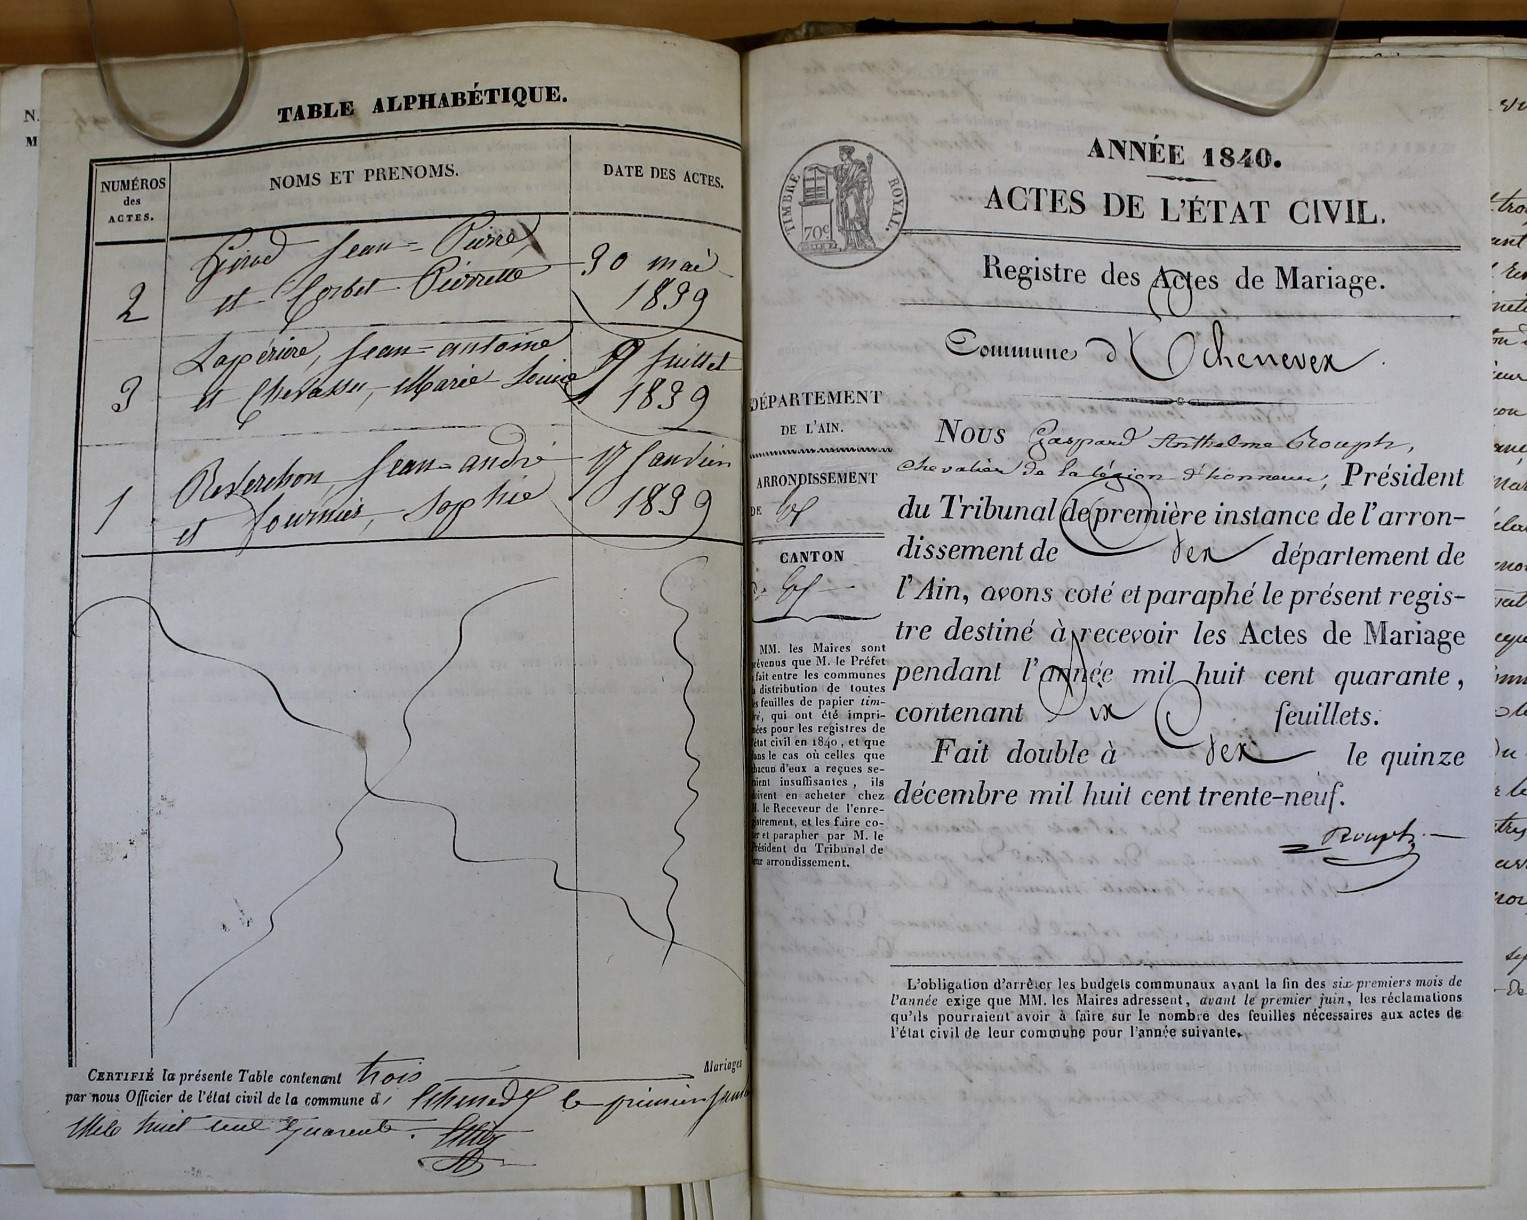 TABLE ALPHABÉTIQUE.
NUMÉROS
des
ACTES.
NOMS ET PRENOMS.
DATE DES ACTES.
Girod Jean=Pierre
2 et Corbet Pierrette
30 mai
1839
Lapériere, Jean=antoine
3 et Chevassu, Marie Louise
9 Juillet
1839
Reverchon Jean=andré
1 et fournier, Sophie
17 Janvier
1839
CERTIFIÉ la présente Table contenant trois Mariages
par nous Officier de l'état civil de la commune d' le premier Janv
Mile huit cent Quarente.
TIMBRE ROYAL.
70c
ANNÉE 1840.
ACTES DE L'ÉTAT CIVIL.
Registre des Actes de Mariage.
Commune d'Echenevex
DÉPARTEMENT
DE L'AIN.
ARRONDISSEMENT
DE Gex
CANTON
de Gex
MM. les Maires sont
prévenus que M. le Préfet
a fait entre les communes
la distribution de toutes
les feuilles de papier tim-
bré, qui ont été impri-
mées pour les registres de
l'état civil en 1840, et que
dans le cas où celles que
chacun d'eux a reçues se-
raient insuffisantes, ils
doivent en acheter chez
M. le Receveur de l'enre-
gistrement, et les faire co-
ter et parapher par M. le
Président du Tribunal de
leur arrondissement.
Nous Gaspard Anthelme Rouph,
chevalier de la légion d'honneur, Président
du Tribunal de première instance de l'arron-
dissement de Gex département de
l'Ain, avons coté et paraphé le présent regis-
tre destiné à recevoir les Actes de Mariage
pendant l'année mil huit cent quarante,
contenant Dix feuillets.
Fait double à Gex le quinze
décembre mil huit cent trente-neuf.
Rouph
L'obligation d'arrêter les budgets communaux avant la fin des six premiers mois de
l'année exige que MM. les Maires adressent, avant le premier juin, les réclamations
qu'ils pourraient avoir à faire sur le nombre des feuilles nécessaires aux actes de
l'état civil de leur commune pour l'année suivante.